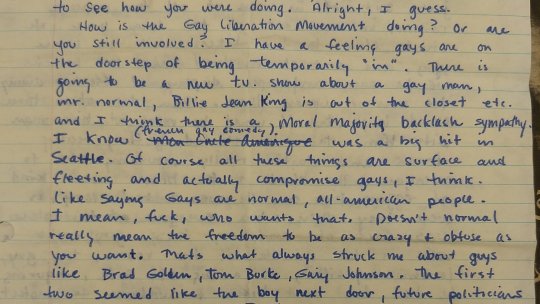 to see how you were doing. Alright, I guess.
How is the Gay Liberation Movement doing? Or are
you still involved? I have a feeling gays are on
the doorstep of being temporarily "in". There is
going to be a new t.v. show about a gay man,
mr. normal, Billie Jean King is out of the closet etc.
and I think there is a Moral Majority backlash sympathy.
(french gay comedy).
I know was a big hit in
Seattle. Of course all these things are surface and
fleeting and actually compromise gays, I think.
Like saying Gays are normal, all-american people.
I mean, fuck, who wants that. Doesn't normal
really mean the freedom to be as crazy & obtuse as
you want. Thats what always struck me about guys
like Brad Golden, Tom Burke, Gary Johnson. The first
two seemed like the boy next door, future politicians